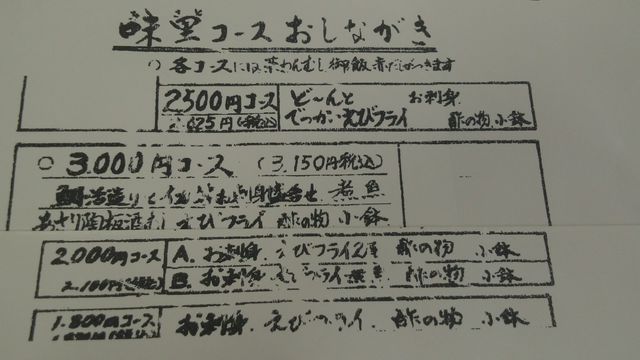 味里コースおしながき
○各コースには茶わんむし、御飯、赤だしがつきます
2500円コース ど〜んと お刺身
2,625円(税込) でっかいえびフライ 酢の物 小鉢
○3,000円コース (3,150円税込)
鯛活造りと お刺身盛合せ 煮魚
あさり陶板酒むし えびフライ 酢の物 小鉢
2,000円コース A. お刺身. えびフライ2尾 酢の物 小鉢
2,100円(税込) B. お刺身. えびフライ 酢の物 小鉢
1,800円コース お刺身. えびフライ. 酢の物. 小鉢